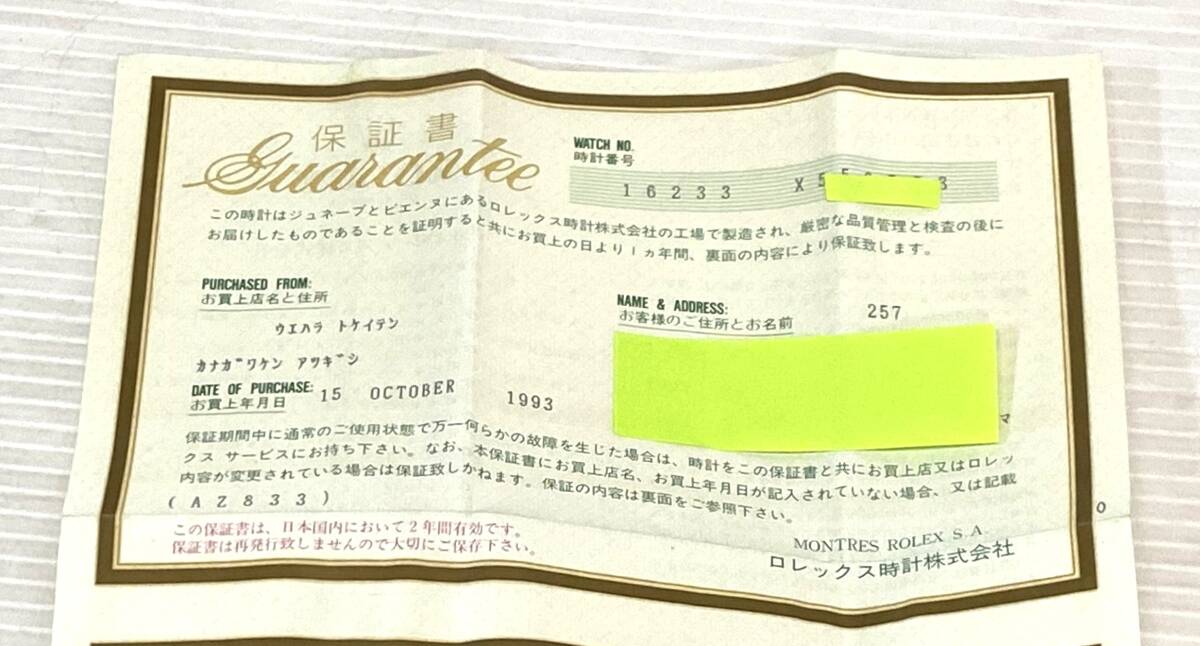 保証書
Guarantee
WATCH NO.
時計番号
16233 X5
この時計はジュネーブとビエンヌにあるロレックス時計株式会社の工場で製造され、厳密な品質管理と検査の後に
お届けしたものであることを証明すると共にお買上の日より1ヵ年間、裏面の内容により保証致します。
PURCHASED FROM:
お買上店名と住所
ウエハラ トケイテン
カナガワケン アツギシ
NAME & ADDRESS: 257
お客様のご住所とお名前
マ
DATE OF PURCHASE: 15 OCTOBER 1993
お買上年月日
保証期間中に通常のご使用状態で万一何らかの故障を生じた場合は、時計をこの保証書と共にお買上店又はロレッ
クス サービスにお持ち下さい。なお、本保証書にお買上店名、お買上年月日が記入されていない場合、又は記載
内容が変更されている場合は保証致しかねます。保証の内容は裏面をご参照下さい。
(AZ833)
この保証書は、日本国内において2年間有効です。
保証書は再発行致しませんので大切にご保存下さい。
MONTRES ROLEX S.A.
ロレックス時計株式会社
0